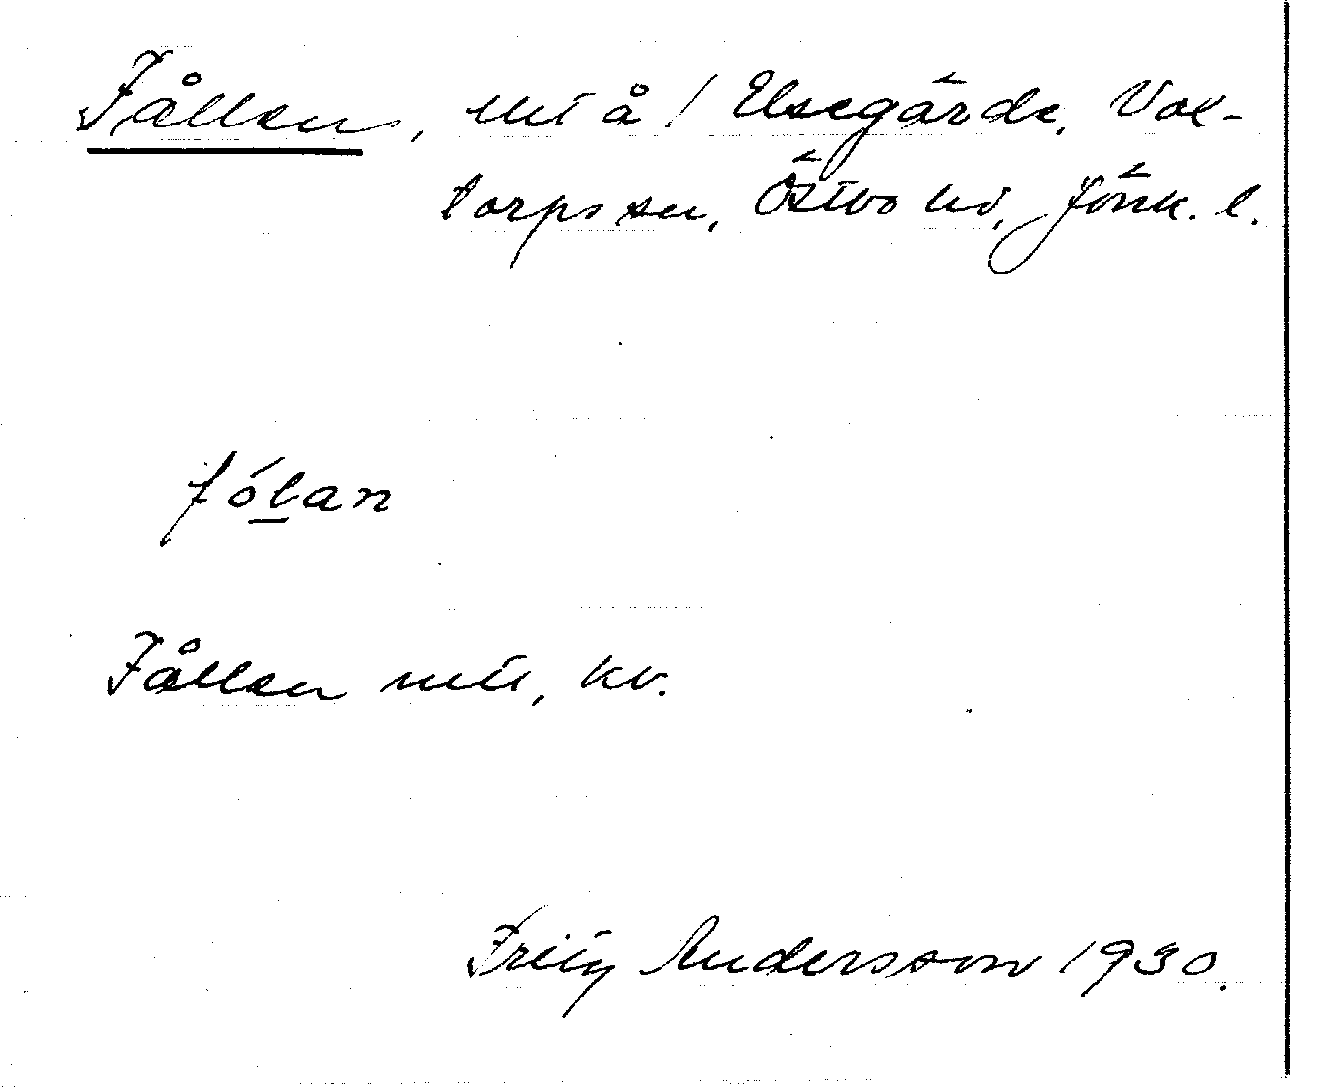 Fållen, utl å / Elsegärde, Val-
torps sn, Östbo hd, Jönk. l.
fólan
Fållen utl, kv.
Fritz Andersson 1930.